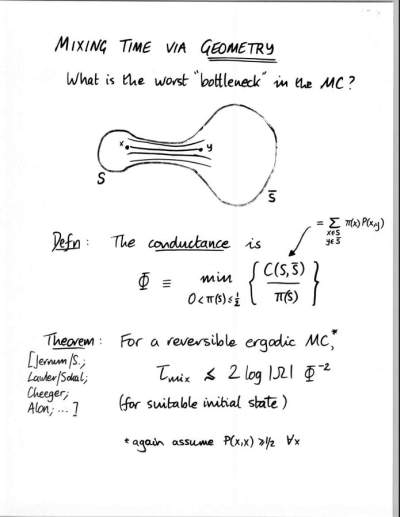 MIXING TIME VIA GEOMETRY
What is the worst "bottleneck" in the MC?
x y
S
S̄
= Σ π(x) P(x,y)
x∈S
y∈S̄
Defn: The conductance is
Φ ≡ min { C(S,S̄) / π(S) }
0<π(S)≤½
Theorem: For a reversible ergodic MC,*
[Jerrum/S.;
Lawler/Sokal;
Cheeger;
Alon; ...]
τmix ≲ 2 log |Ω| Φ⁻²
(for suitable initial state)
* again assume P(x,x) ≥ 1/2 ∀x